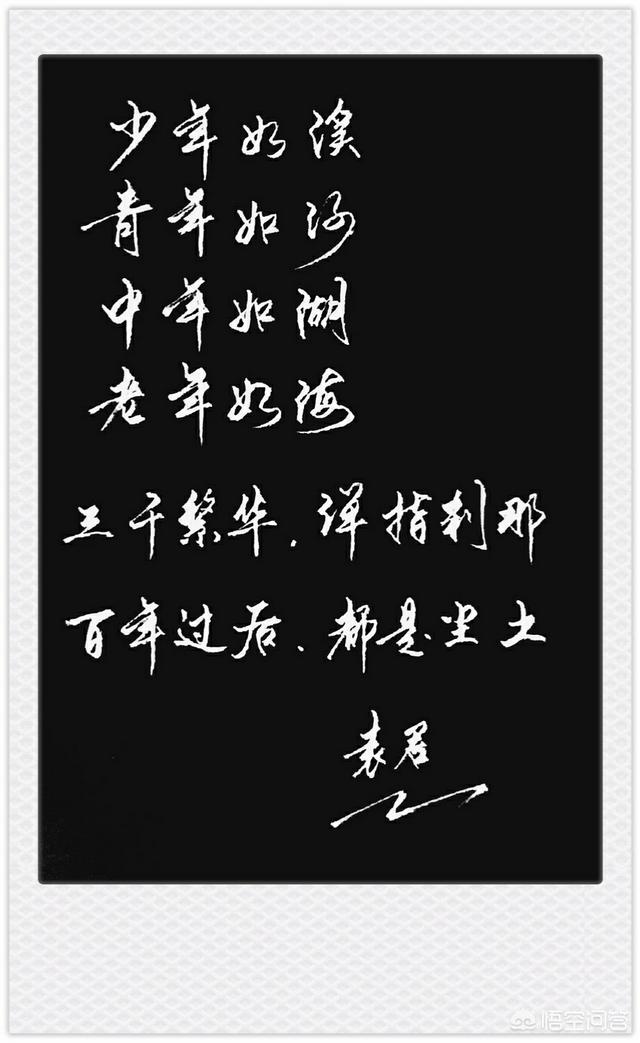 少年如溪
青年如河
中年如湖
老年如海
三千繁华.弹指刹那
百年过后.都是尘土
袁君
悟空问答